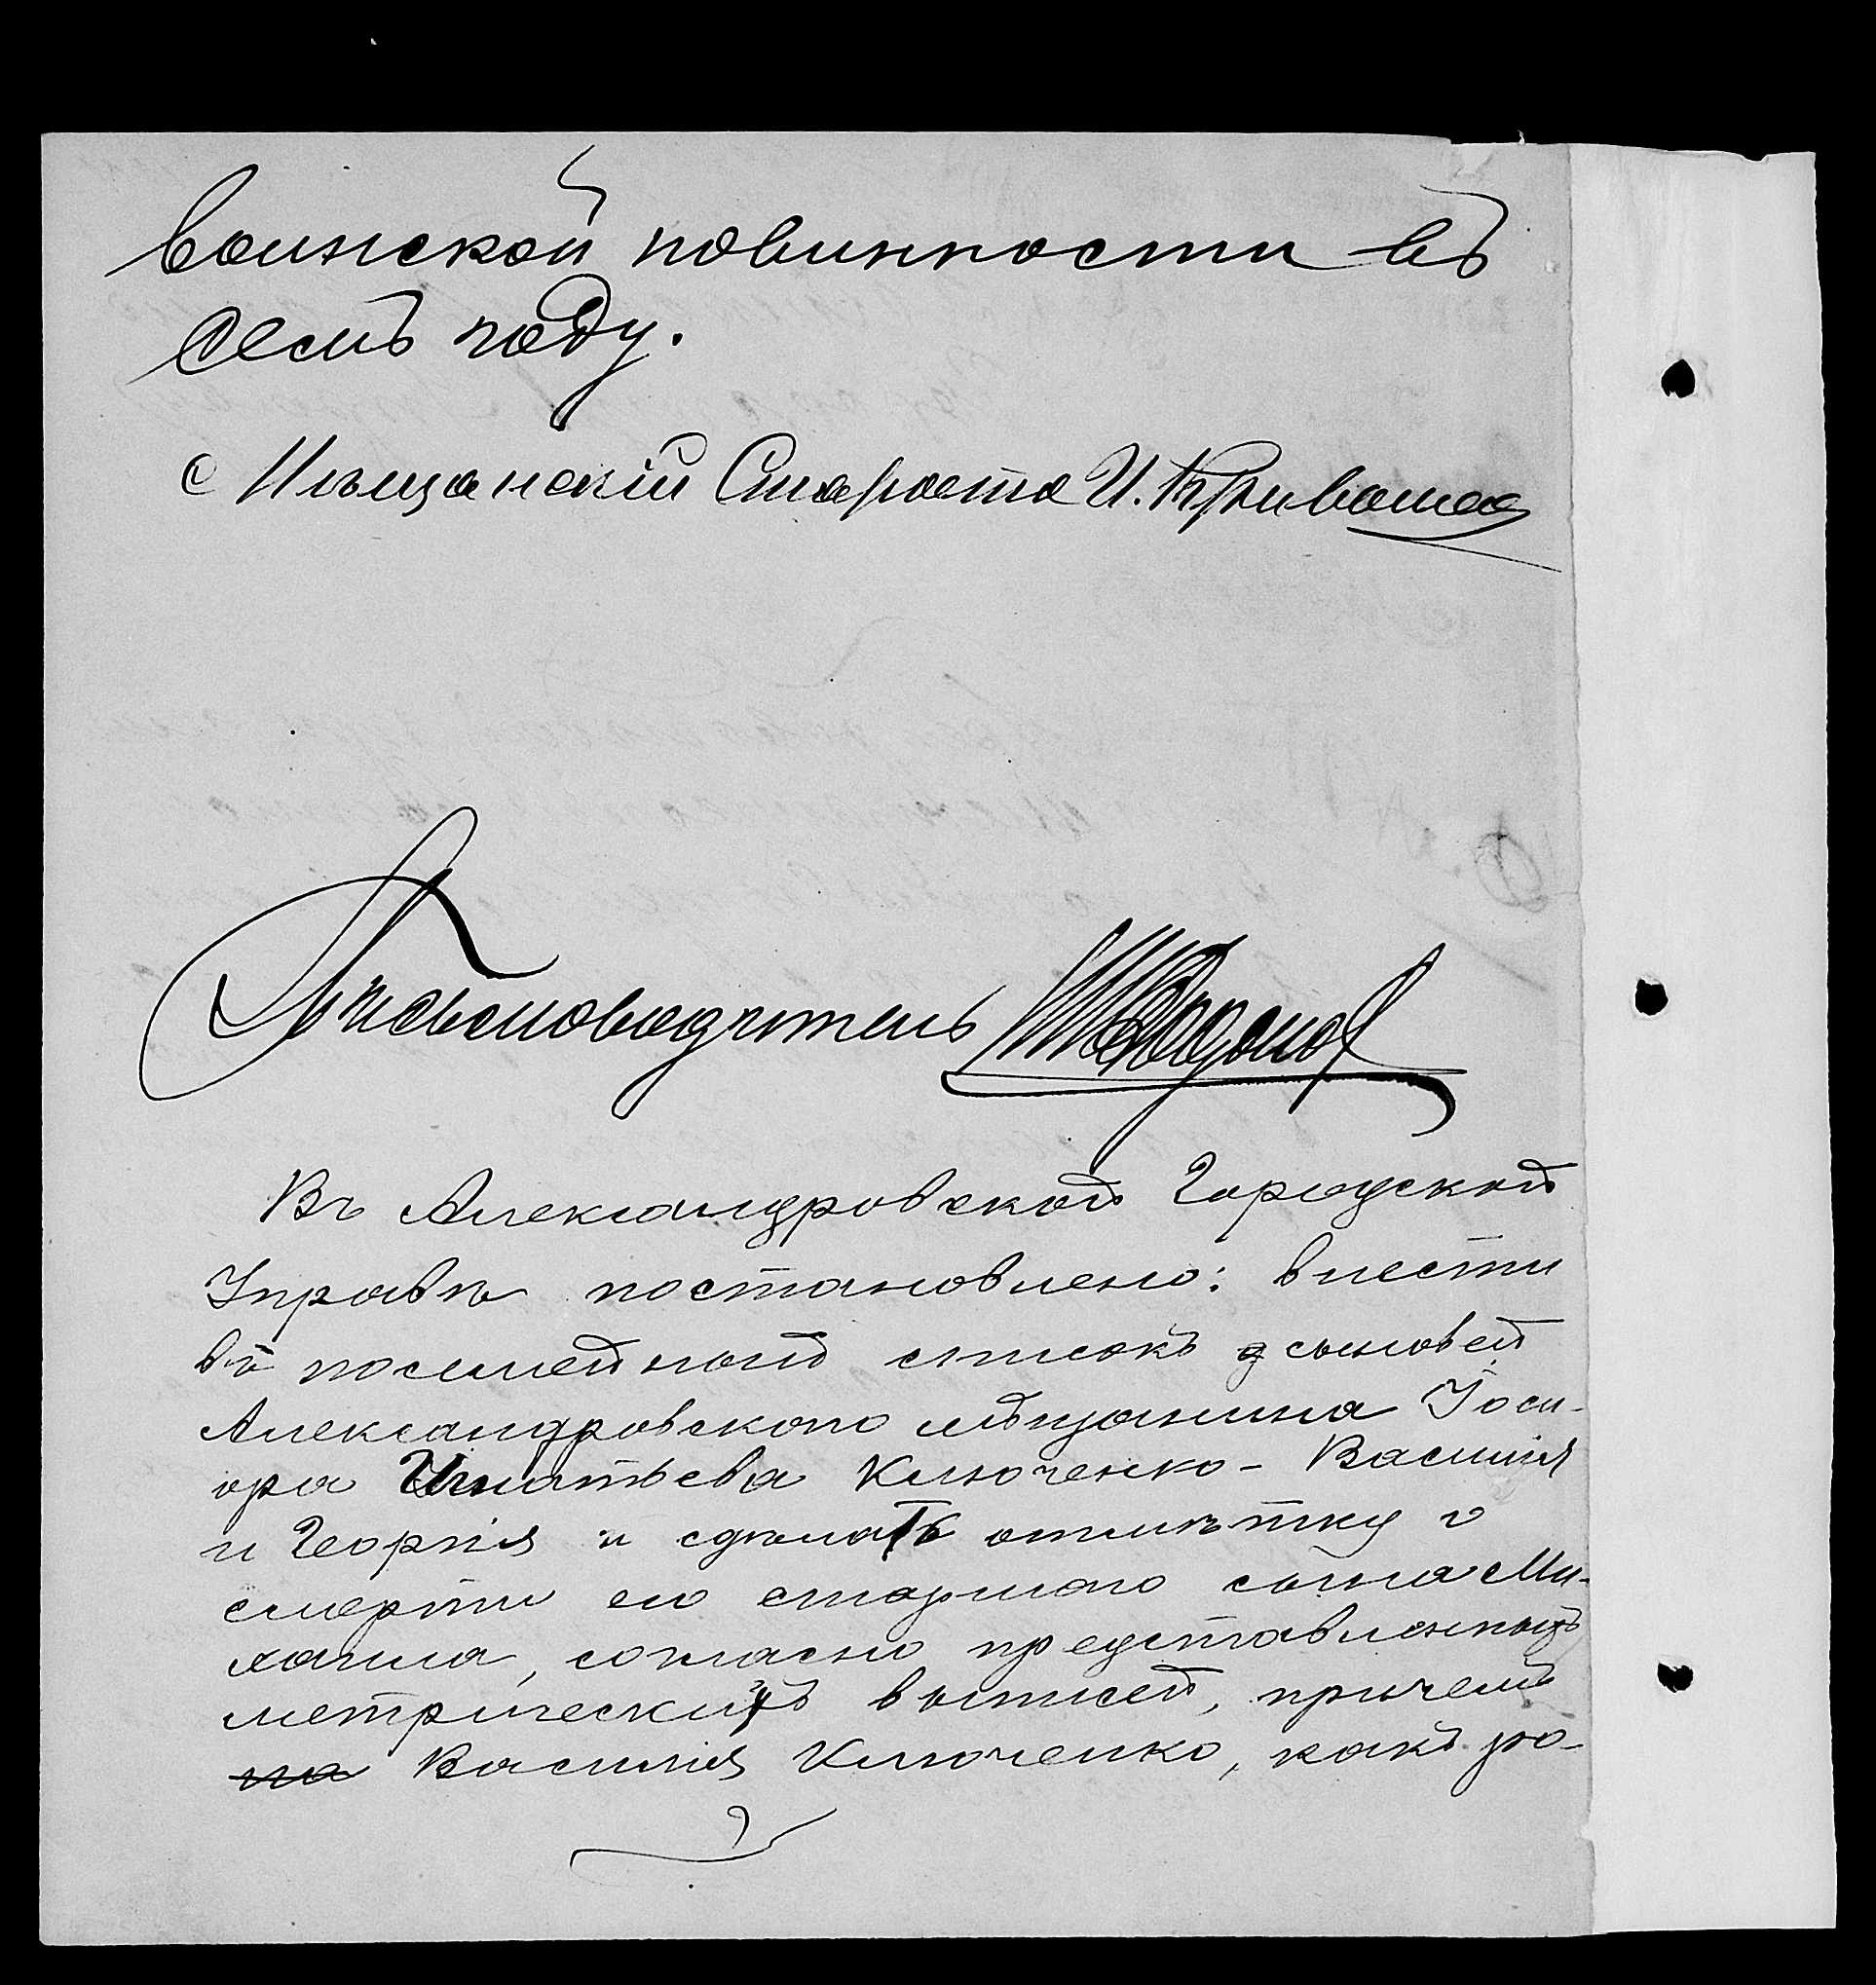 воинской повинности въ
семъ году.
Мѣщанскій Староста И. Кривошея
Письмоводитель
Въ Александровской Городской
Управѣ постановлено: внести
въ посемейный списокъ сыновей
Александровскаго мѣщанина Iоси-
ора Игнатьева Ключенко - Василія
и Георгія и сдѣлать отмѣтку о
смерти его старшаго сына Ми-
хаила, согласно представленныхъ
метрическихъ выписей, причемъ
на Василія Ключенко, какъ ро-